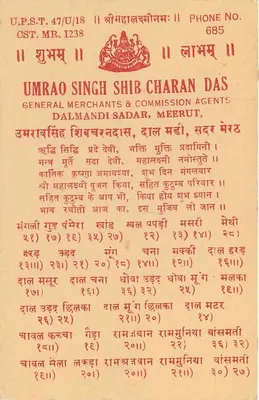 U.P.S.T. 47/U/18 ॥ श्रीमहालक्ष्मीनमः ॥ PHONE No.
CST. MR. 1238 685
॥ शुभम् ॥ ॥ लाभम् ॥
UMRAO SINGH SHIB CHARAN DAS
GENERAL MERCHANTS & COMMISSION AGENTS
DALMANDI SADAR, MEERUT,
उमरावसिंह शिबचरनदास, दाल मंडी, सदर मेरठ
ऋद्धि सिद्धि प्रदे देवी, भक्ति मुक्ति प्रदायिनी।
मन्त्र मूर्ते सदा देवी, महालक्ष्मी नमोस्तुते॥
कार्तिक कृष्णा अमावश्या, शुभ दिन मंगलवार
श्री महालक्ष्मी पूजन किया, सहित कुटुम्ब परिवार॥
सहित कुटुम्ब के आप भी, किया होय शुभ ध्यान
भाव रचौती आज का, इस मुजिब लो जान॥
मंगली गुड़ पंसेरा खांड चल पपड़ी मसरी मेथी
५१) १७) १९) ३५) २७) ६१) ५१)
अरहड़ उड़द मूंग चना मक्की दाल हरड़
१३॥) २३) २१) २०) १८) १४॥) १२) १६॥)
दाल मसूर दाल चना धोवा उड़द धोवा मूंग मलका
१७) १६) ३६) ३२) १५)
दाल उड़द छिलका दाल मूंग छिलका दाल मटर
२६) २५) २१॥) २०) १४)
चावल फरचा गैड़ा रामजवान रामभुनिया बांसमती
१८॥) २०) २२) ३६) ३२)
चावल मेला लकड़ा रामअजवान रामभुनिया बांसमती
१९॥) २०॥) २१॥) ३०) ५१)